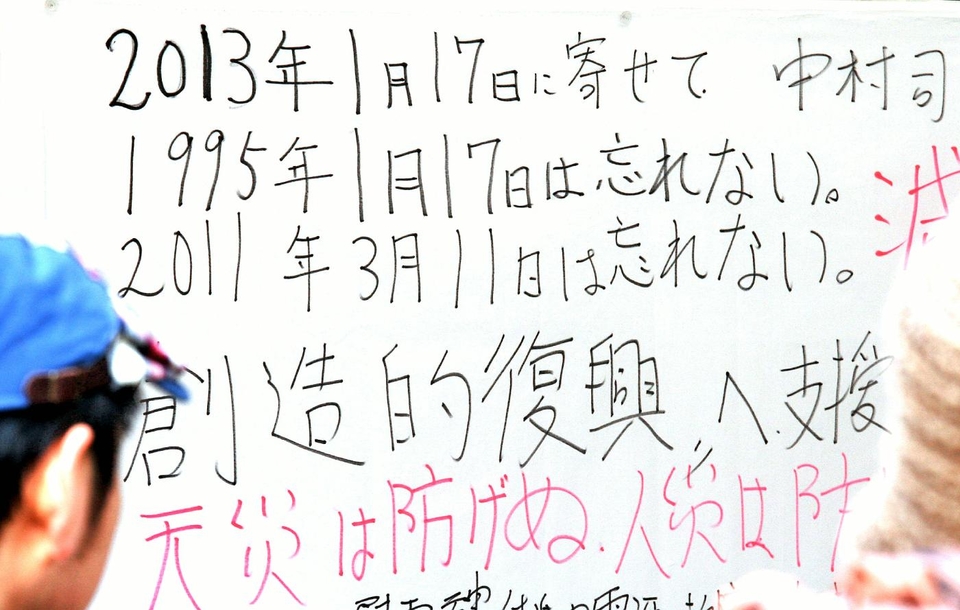 2013年1月17日に寄せて 中村司
1995年1月17日は忘れない。
2011年3月11日は忘れない。
創造的復興へ支援
天災は防げぬ.人災は防